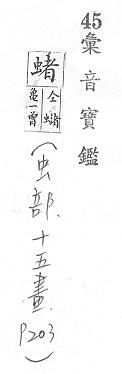 45彙音寶鑑
蝫
仝蝫
龜一曾
(虫部.十五畫.P203)